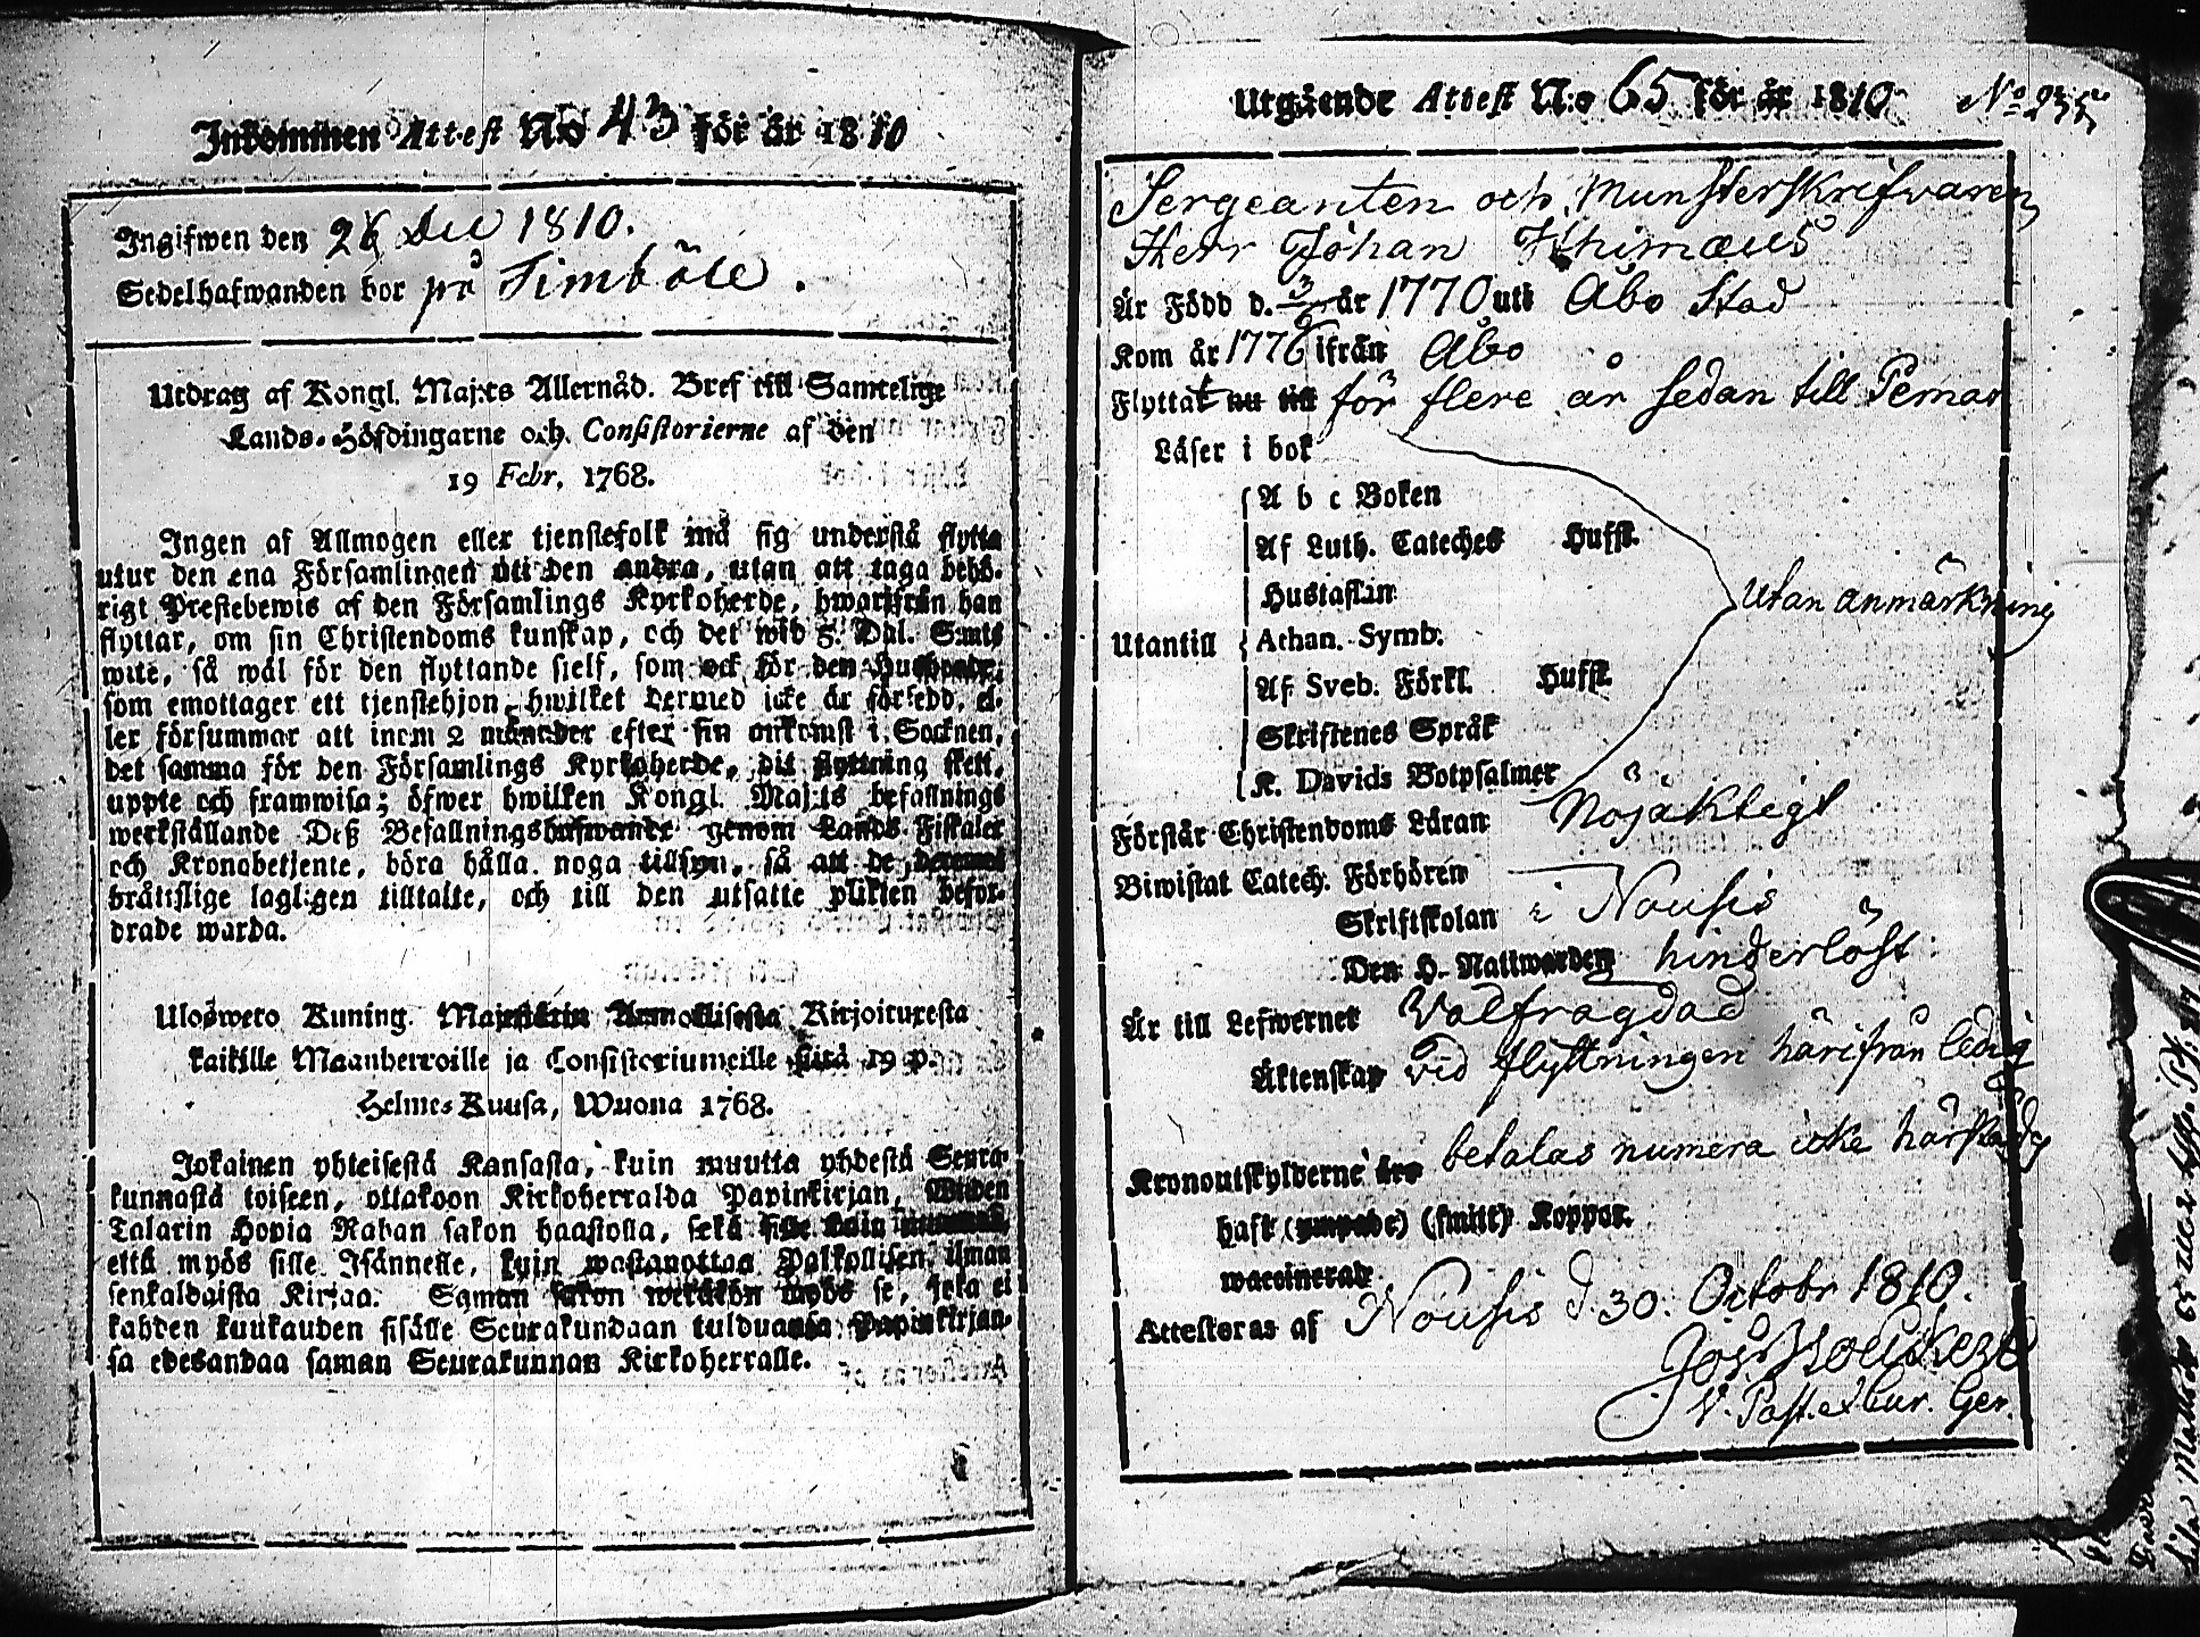 Inkommen Attest N:o 43 för år 1810
Ingifwen den 26 Dec 1810.
Sedelhafwanden bor på Timböle.
Utdrag af Kongl. Maj:ts Allernåd. Bref till Samtelige
Lands-Höfdingarne och Consistorierne af den
19 Febr. 1768.
Ingen af Allmogen eller tjenstefolk må sig understå flytta
utur den ena Församlingen uti den andra, utan att taga behö-
rigt Prestebewis af den Församlings Kyrkoherde, hwarifrån han
flyttar, om sin Christendoms kunskap, och det wid 5. Dal. S:mts
wite, så wäl för den flyttande sjelf, som ock för den Husbonde,
som emottager ett tjenstehjon, hwilket dermed icke är försedd, el-
ler försummar att inom 2 månader efter sin ankomst i Socknen,
det samma för den Församlings Kyrkoherde, dit flyttning skett,
uppte och framwisa; öfwer hwilken Kongl. Maj:ts befallnings
werkställande Deß Befallningshafwande genom Lands Fiskaler
och Kronobetjente, böra hålla noga tillsyn, så att de deremot
brätslige lagligen tilltalte, och till den utsatte plikten befor-
drade warda.
Uloswero Kuning. Majestätin Armollisesta Kirjoituxesta
kaikille Maanherroille ja Consistoriumeille siitä 19 p.
Helme-Kuusa, Wuona 1768.
Jokainen yhteisestä Kansasta, kuin muutta yhdestä Seura-
kunnasta toiseen, ottakoon Kirkoherralda Papinkirjan, Wiiden
Talarin Hopia Rahan sakon haastolla, sekä sille kuin muutta
että myös sille Isännelle, kuin wastanottaa Palkollisen ilman
senkaldaista Kirjaa. Saman sakon wetäkön myös se, joka ei
kahden kuukauden sisälle Seurakundaan tulduansa Papinkirjan-
sa edesandaa saman Seurakunnan Kirkoherralle.
Utgående Attest N:o 65 för år 1810 No 235
Sergeanten och Munsterskrifvaren
Herr Johan Ithimæus
Är Född d. 3/6 år 1770 uti Åbo Stad
Kom år 1776 ifrån Åbo
Flyttat nu till för flere år sedan till Pemar
Läser i bok
A b c Boken
Af Luth. Cateches Hufst.
Hustaflan
utan anmärkning
Utantill Athan. Symb.
Af Sveb. Förkl. Hufst.
Skriftenes Språk
K. Davids Botpsalmer
Förstår Christendoms Läran Nöjaktigt
Biwistat Catech. Förhören
Skriftskolan i Nousis
Den H. Nattwarden hinderlöst
Är till Lefwernet Välfrägdad
Äktenskap vid flyttningen härifrån ledig
Kronoutskylderne äro betalas numera icke härstädes
haft (smitt) Koppor.
waccinerad
Attesteras af Nousis d. 30. Octobr 1810.
V. Past. et Cur. Ger.